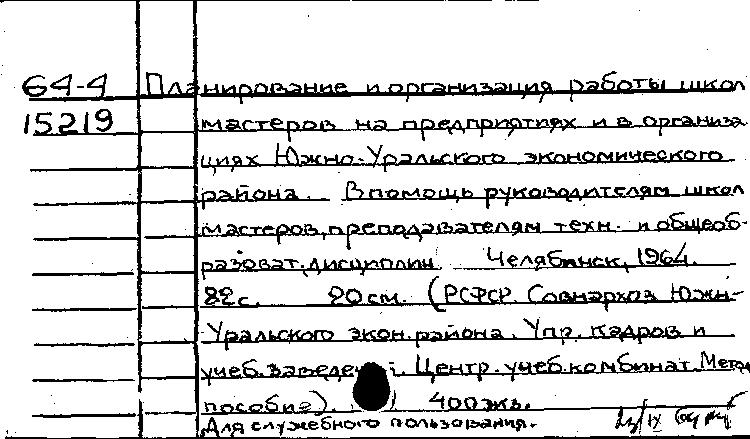 64-4 Планирование и организация работы школ
15219 мастеров на предприятиях и в организа
циях Южно-Уральского экономического
района. В помощь руководителям школ
мастеров, преподавателям техн. и общеоб-
разоват. дисциплин. Челябинск, 1964.
82 с. 20 см. (РСФСР. Совнархоз Южн-
Уральского экон. района. Упр. кадров и
учеб. Центр. учеб. комбинат. Метод
пособие). 400 экз.
Для служебного пользования.